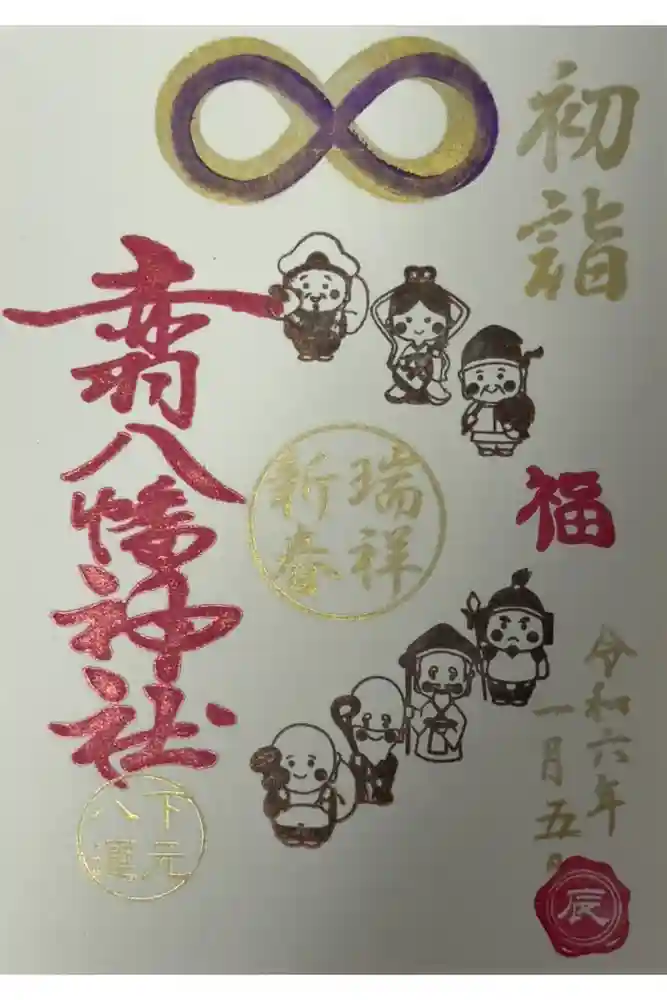 初詣
福
令和六年
一月五日
瑞祥
新春
八幡神社
下元
八運
辰